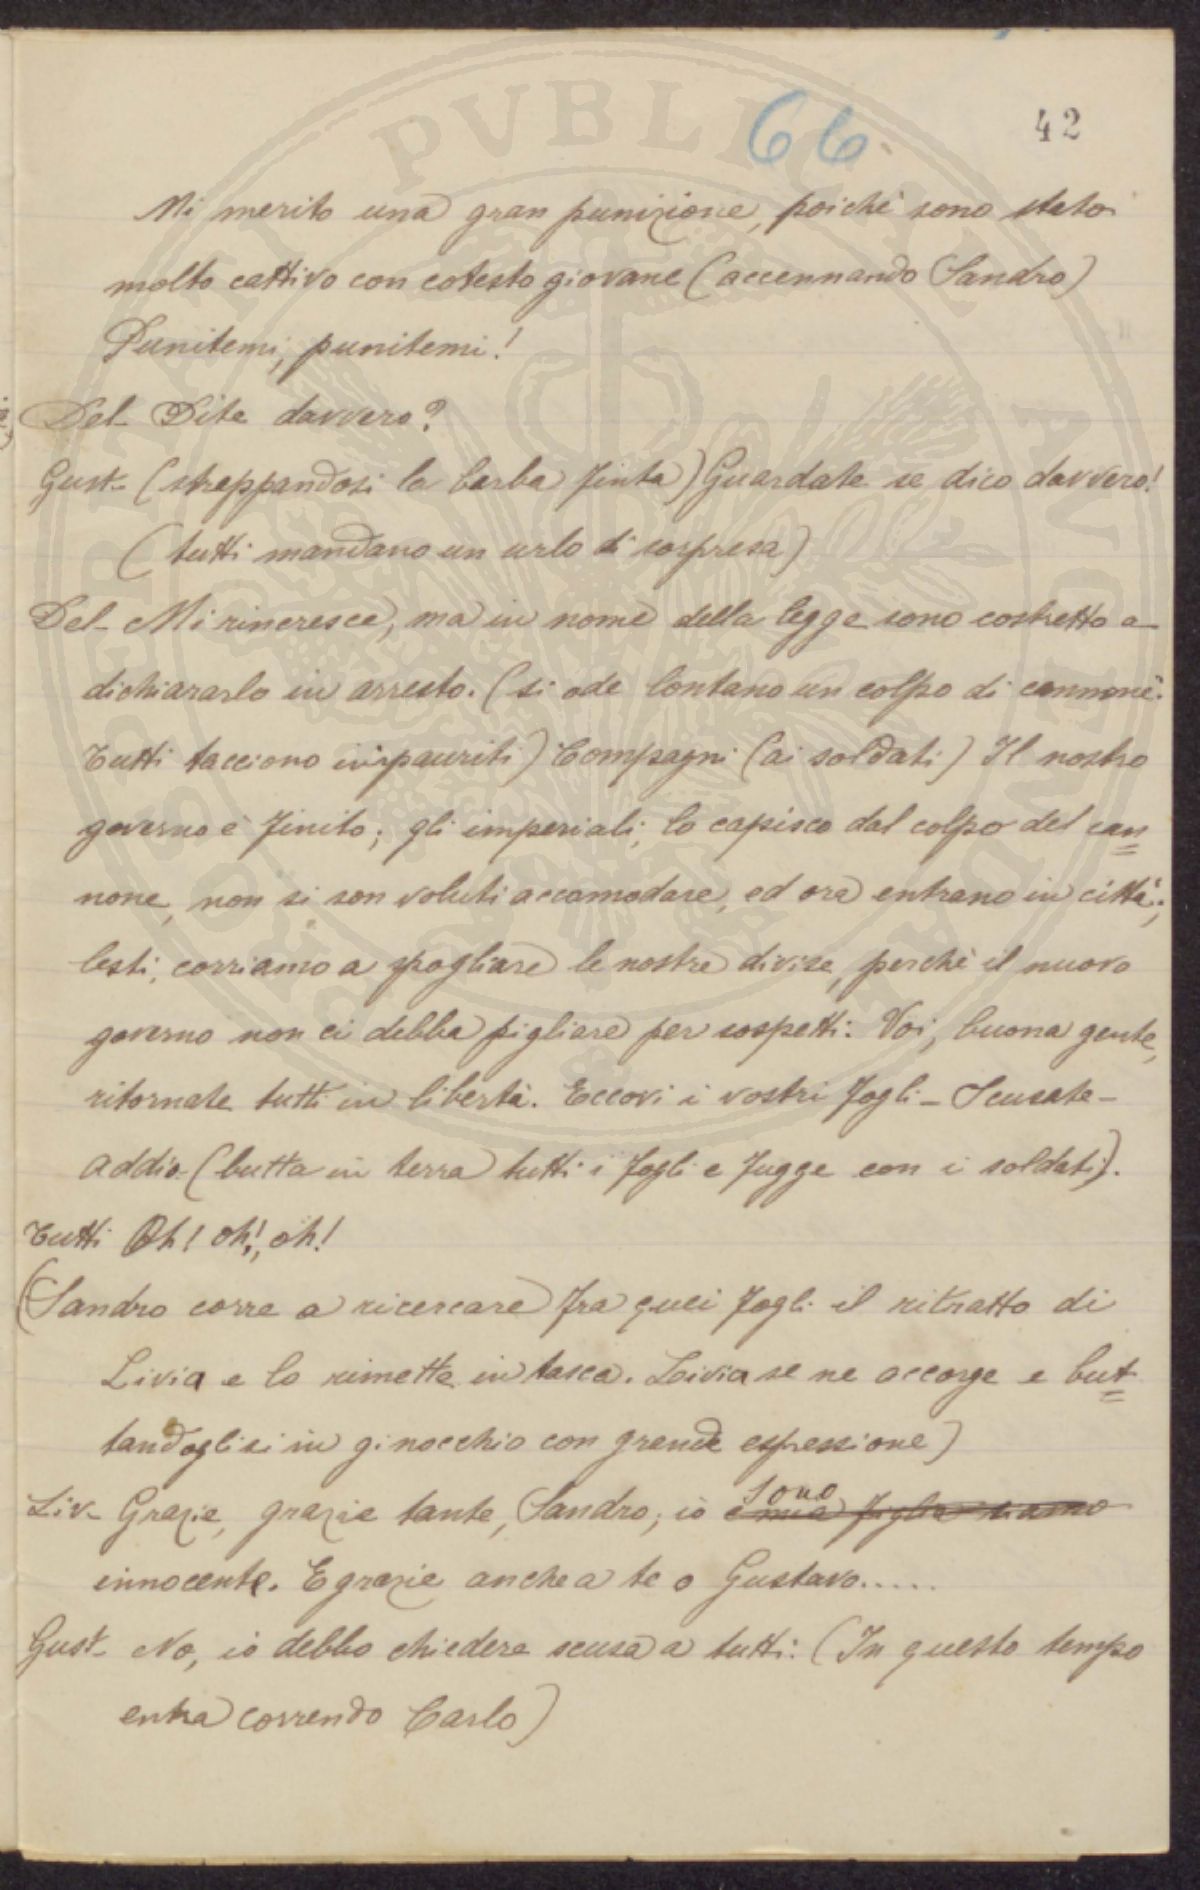 66
42
Mi merito una gran punizione, poichè sono stato
molto cattivo con cotesto giovane (accennando Sandro)
Punitemi, punitemi!
Del- Dite davvero?
Gust- (strappandosi la barba finta) Guardate se dico davvero!
(tutti mandano un urlo di sorpresa)
Del- Mi rincresce, ma in nome della legge sono costretto a
dichiararlo in arresto. (si ode lontano un colpo di cannone.
Tutti tacciono impauriti) Compagni (ai soldati) Il nostro
governo è finito; gli imperiali, lo capisco dal colpo del can=
none, non si son voluti accomodare, ed ora entrano in città;
lesti, corriamo a spogliare le nostre divise, perchè il nuovo
governo non ci debba pigliare per sospetti: Voi, buona gente,
ritornate tutti in libertà. Eccovi i vostri fogli - Scusate -
addio (butta in terra tutti i fogli e fugge con i soldati).
Tutti Oh! oh!, oh!
(Sandro corre a ricercare fra quei fogli il ritratto di
Livia e lo rimette in tasca. Livia se ne accorge e but=
tandoglisi in ginocchio con grande espressione)
sono
Liv- Grazie, grazie tante, Sandro; io e mia figlia siamo
innocente. E grazie anche a te o Gustavo.....
Gust- No, io debbo chiedere scusa a tutti: (In questo tempo
entra correndo Carlo)
PVBLICAL